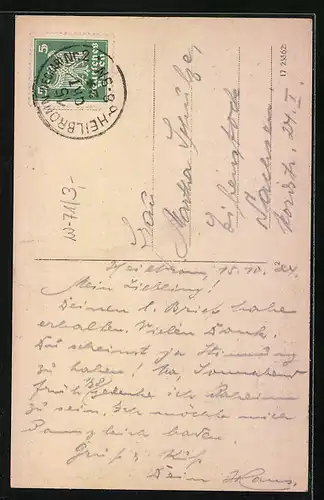 5
Deutsches Reich
HEILBRONN
17 23662
N-711/3,-
Frau
Martha Schulze,
Eibenstock
Sachsen.
24. I.
Heilbronn, 15.10.24.
Mein Liebling!
Deinen l. Brief habe
erhalten. Vielen Dank.
Du scheinst ja Stimmung
zu haben! Na, Sonnabend
früh gedenke ich daheim
zu sein. Ich möchte mich
dann gleich baden.
Gruß & Kuß
Dein Hans.